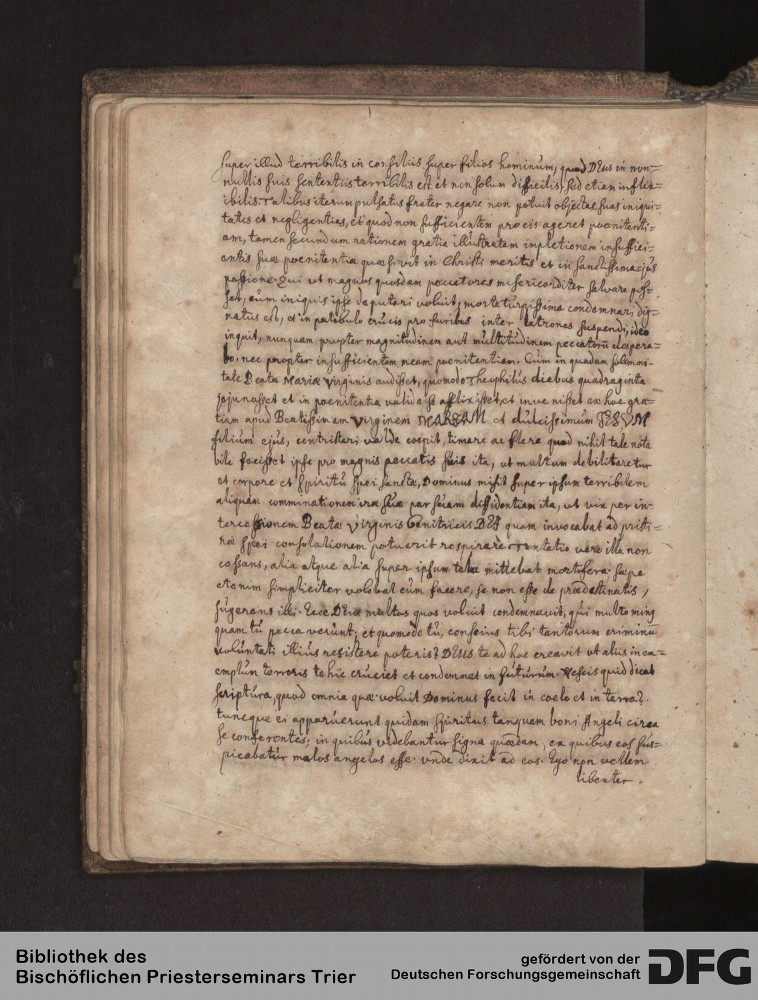 super illud terribilis in consiliis super filios hominum, quod DEus in non=
nullis suis sententiis terribilis est et non solum difficilis, sed etiam infle=
ibilis. Talibus iterum pulsatus frater negare non potuit objectas suas iniqui-
tates et negligentias, et quod non sufficientem pro eis ageret poenitenti=
am, tamen secundum rationem gratia illustratam impletionem insuffici=
entis suae poenitentiae quaesivit in Christi meritis et in sanctissima ejus
passione. Qui ut magnos quosdam peccatores misericorditer salvare pos=
set, cum iniquis ipse deputari voluit, morte turpissima condemnari dig=
natus est, et in patibulo crucis pro furibus inter latrones suspendi, ideo
inquit, nunquam propter magnitudinem aut multitudinem peccatorū despera=
bo, nec propter insufficientem meam poenitentiam. Cum in quadam solemni-
tate Beatae Mariae Virginis audisset, quomodo Theophilus diebus quadraginta
jejunasset et in poenitentia valida se afflixisset, et invenisset ex hoc gra=
tiam apud Beatissimam Virginem MARIAM et dulcissimum JESUM
filium ejus, contristari valde coepit, timere ac flere quod nihil tale nota
bile fecisset ipse pro magnis peccatis suis ita, ut multum debilitaretur
et corpore et spiritu spei sanctae, Dominus misit super ipsum terribilem
aliquam comminationem irae suae per suam diffidentiam ita, ut vix per in-
tercessionem Beatae Virginis Genitricis DEI quam invocabat ad pristi=
nae spei consolationem potuerit respirare. Tentatio vero illa non
cessans, alia atque alia super ipsum tela mittebat mortifera. Saepe
etenim simpliciter volebat eum facere, se non esse de praedestinatis,
sugerens illi. Ecce DEus multos quos voluit condemnavit, qui multo minq
quam tu peccaverunt; et quomodo tu, conscius tibi tantorum criminū
voluntati illius resistere poteris? DEus te ad hoc creavit ut aliis in ex=
emplum terroris te hic cruciet et condemnet in futurum. Nescis quid dicat
scriptura, quod omnia quae voluit Dominus fecit in coelo et in terra?
tuncque ei apparuerunt quidam spiritus tanquam boni Angeli circa
se conferentes; in quibus videbantur signa quaedam, ex quibus eos sus=
picabatur malos angelos esse. Unde dixit ad eos. Ego non vellem
libenter.
Bibliothek des
Bischöflichen Priesterseminars Trier
gefördert von der
Deutschen Forschungsgemeinschaft
DFG